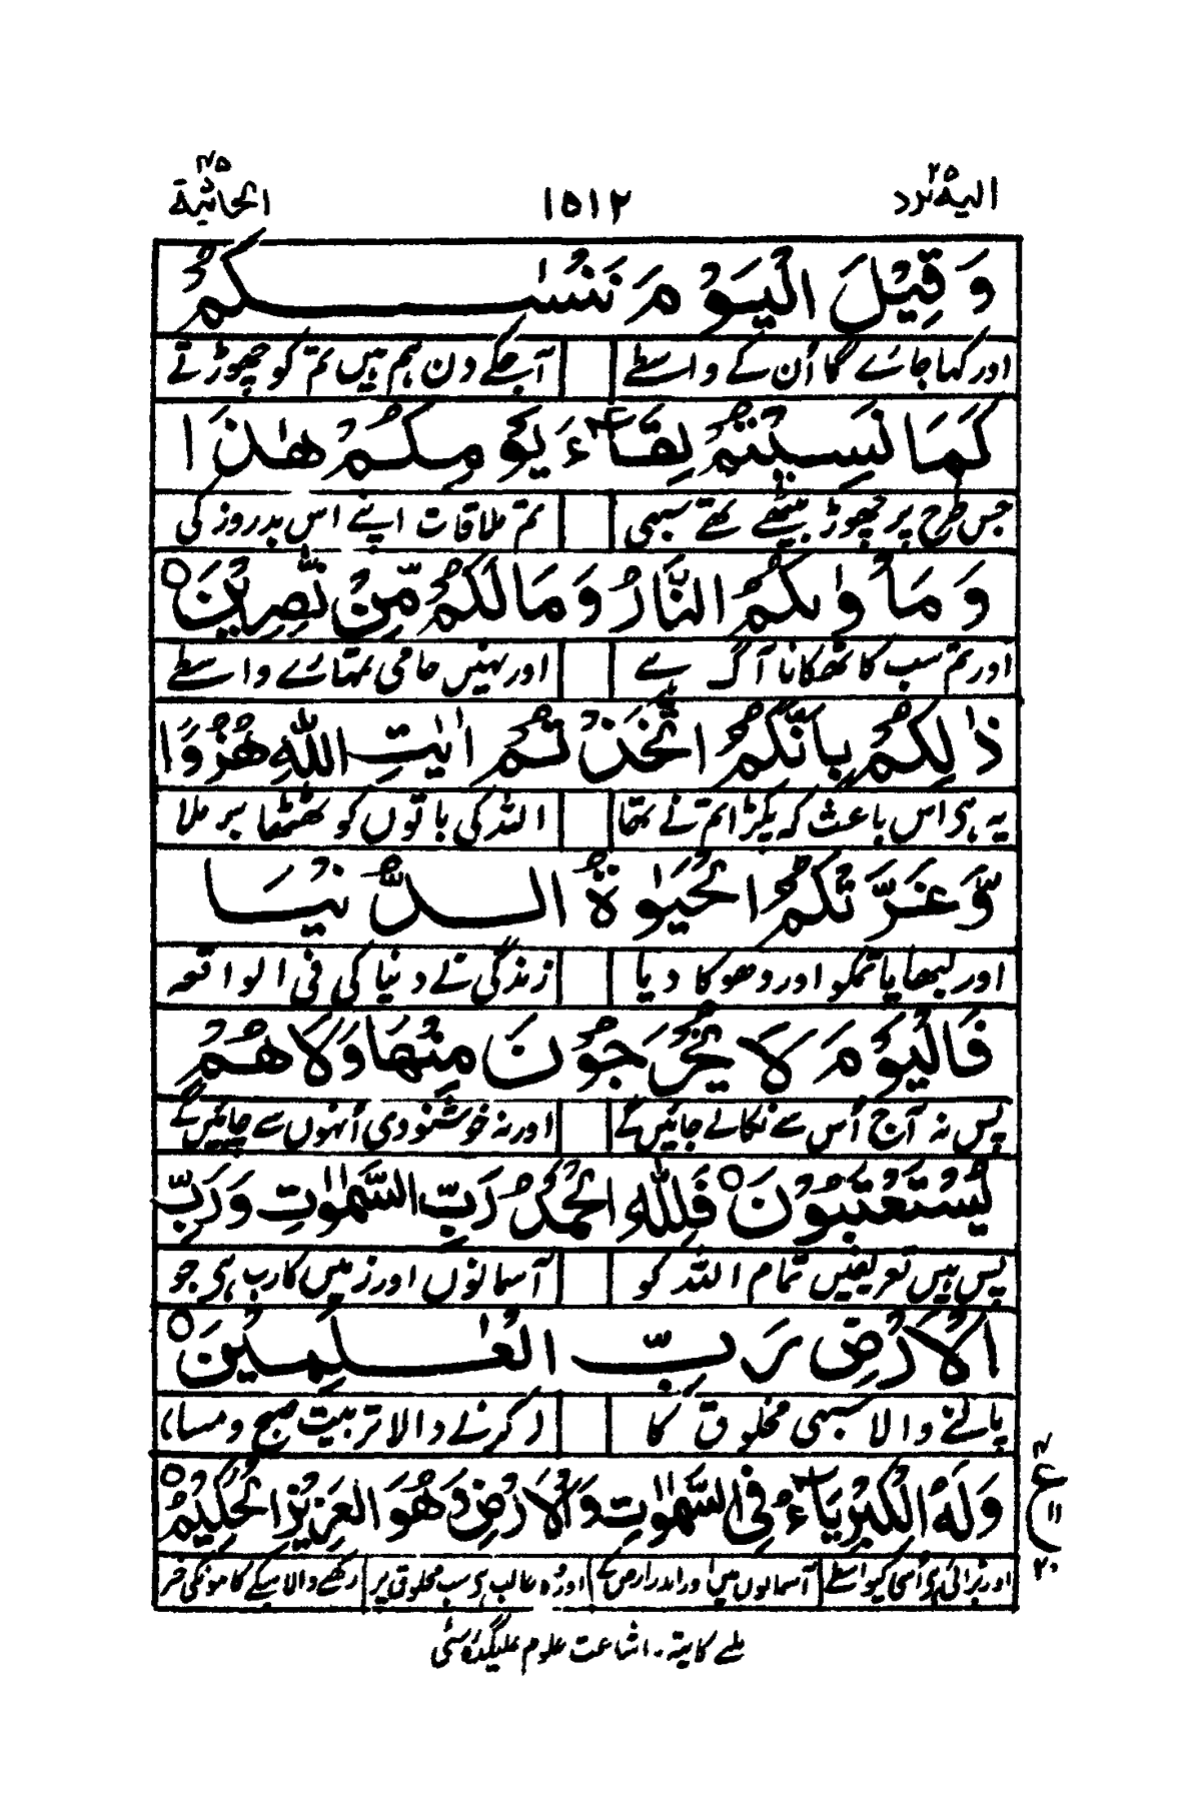 الیہ یرد ٢٥ ١٥١٢ الجاثیة ٤٥
وَقِيْلَ الْيَوْمَ نَنْسٰىكُمْ
اور کہا جائے گا اُن کے واسطے آج کے دن ہم ہیں تم کو چھوڑتے
كَمَا نَسِيْتُمْ لِقَآءَ يَوْمِكُمْ هٰذَا
جس طرح پر چھوڑ بیٹھے تھے سبھی تم ملاقات اپنے اس بدروز کی
وَمَاْوٰىكُمُ النَّارُ وَمَا لَكُمْ مِّنْ نّٰصِرِيْنَ
اور تم سب کا ٹھکانا آگ ہے اور نہیں حامی تمہارے واسطے
ذٰلِكُمْ بِاَنَّكُمُ اتَّخَذْتُمْ اٰيٰتِ اللّٰهِ هُزُوًا
یہ ہی اس باعث کہ پکڑا تم نے تھا اللہ کی باتوں کو ٹھٹھا برملا
وَّغَرَّتْكُمُ الْحَيٰوةُ الدُّنْيَا
اور لبھایا تمکو اور دھوکا دیا زندگی نے دنیا کی فی الواقعہ
فَالْيَوْمَ لَا يُخْرَجُوْنَ مِنْهَا وَلَا هُمْ
پس نہ آج اُس سے نکالے جائیں گے اور نہ خوشنودی اُنہوں سے چاہیں گے
يُسْتَعْتَبُوْنَ فَلِلّٰهِ الْحَمْدُ رَبِّ السَّمٰوٰتِ وَرَبِّ
پس ہیں تعریفیں تمام اللہ کو آسمانوں اور زمیں کا رب ہی جو
الْاَرْضِ رَبِّ الْعٰلَمِيْنَ
پالنے والا سبھی مخلوق کا کرنے والا تربیت صبح و مسا
وَلَهُ الْكِبْرِيَآءُ فِي السَّمٰوٰتِ وَالْاَرْضِ وَهُوَ الْعَزِيْزُ الْحَكِيْمُ
اور بڑائی ہی اُسی کیواسطے آسمانوں میں اور اندر ارض کے اور وہ غالب ہی سب مخلوق پر رکھنے والا
ع ٤ ١١ ٢٠
ملنے کا پتہ۔ اشاعت علوم علیگڈہ سٹی